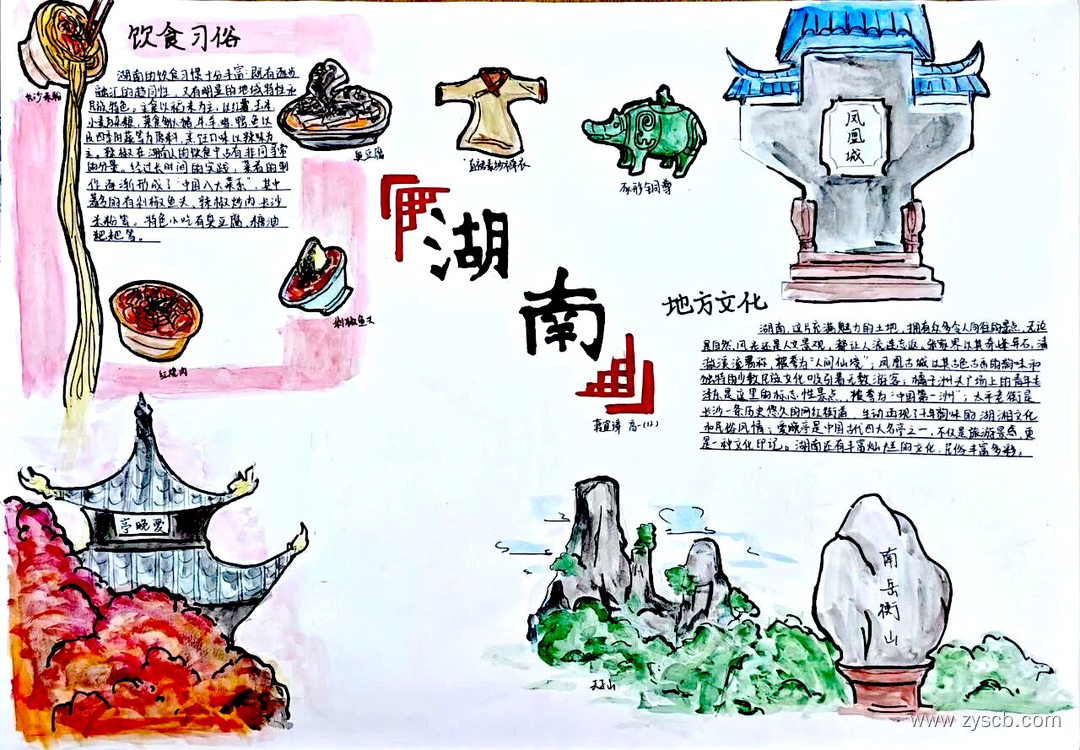 饮食习俗
湖南的饮食习惯十分丰富:既有逐步
融汇的趋同性,又有明显的地域特性和
民族特色。主食以稻米为主,以红薯、玉米、
小麦为杂粮,菜食则以猪、牛、羊、鸡、鸭、鱼以
及四季时蔬等为原料,烹饪口味以辣味为
主。辣椒在湖南人的饮食中占有非同寻常
的分量。经过长时间的实践,菜肴的制
作逐渐形成了“中国八大菜系”,其中
著名的有剁椒鱼头、辣椒炒肉、长沙
米粉等。特色小吃有臭豆腐、糖油
粑粑等。
长沙米粉
臭豆腐
剁椒鱼头
红烧肉
直裾素纱襌衣
豕形铜尊
湖
南
高一(12)
凤凰城
地方文化
湖南,这片充满魅力的土地,拥有众多令人向往的景点,无论
是自然风光还是人文景观,都让人流连忘返。张家界以其奇峰异石,清
澈溪流著称,被誉为“人间仙境”;凤凰古城以其古色古香的韵味和
独特的少数民族文化吸引着无数游客;橘子洲头广场上的青年毛
泽东是这里的标志性景点,被誉为“中国第一洲”;太平老街是
长沙一条历史悠久的网红街道,生动再现了千年韵味的湖湘文化
和民俗风情;爱晚亭是中国古代四大名亭之一,不仅是旅游景点,更
是一种文化印记。湖南还有丰富灿烂的文化,民俗丰富多彩。
亭晚爱
天子山
南岳衡山
www.zyscb.com